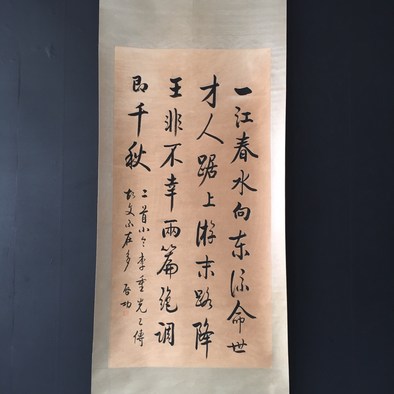 一江春水向东流命世
才人踞上游末路降
王非不幸兩篇絶調
即千秋
二首小令李重光之傳
故文不在多 啓功